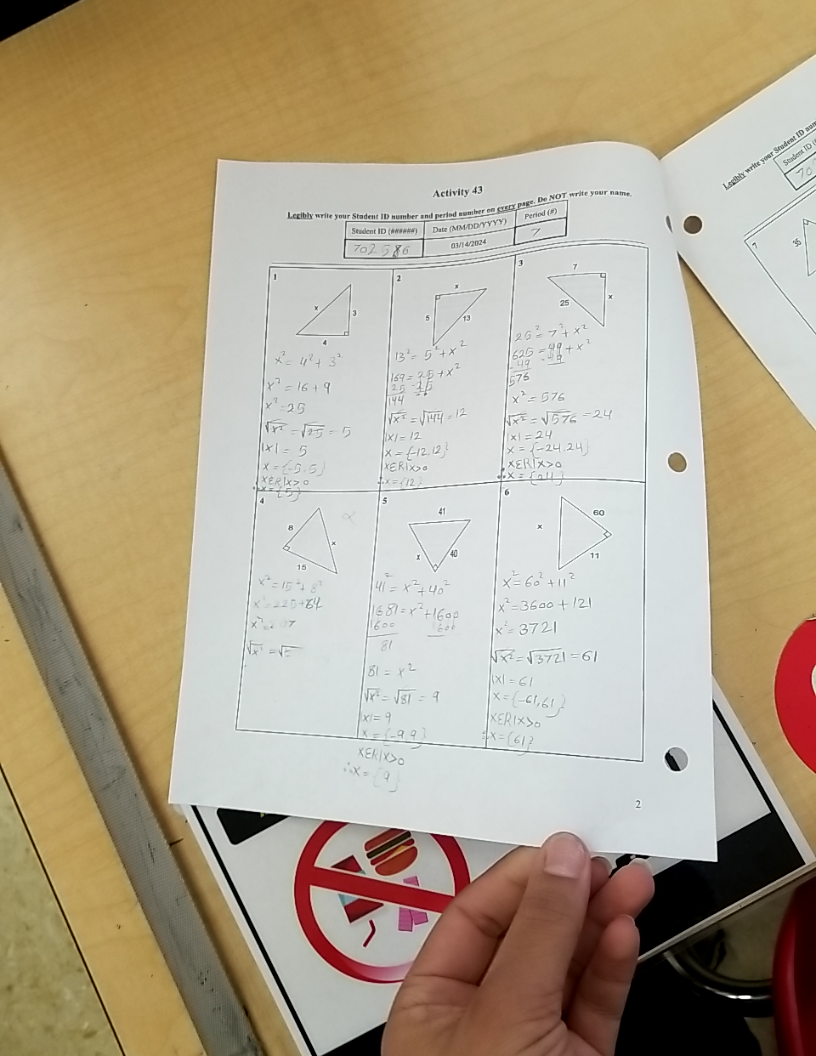 Activity 43
Legibly write your Student ID number and period number on every page. Do NOT write your name.
Student ID (######) Date (MM/DD/YYYY) Period (#)
702586 03/14/2024 7
1
x
3
4
x² = 4² + 3²
x² = 16 + 9
x² = 25
√x² = √25 = 5
|x| = 5
x = {-5,5}
xER|x>0
∴x = {5}
2
x
5
13
13² = 5² + x²
169 = 25 + x²
25 -25
144
√x² = √144 = 12
|x| = 12
x = {-12,12}
xER|x>0
∴x = {12}
3
7
25
x
25² = 7² + x²
625 = 49 + x²
-49 -49
576
x² = 576
√x² = √576 = 24
|x| = 24
x = {-24,24}
xER|x>0
∴x = {24}
4
8
x
15
x² = 15² + 8²
x² = 225 + 64
√x² = √
5
41
x
40
41² = x² + 40²
1681 = x² + 1600
1600 1600
81
81 = x²
√x² = √81 = 9
|x| = 9
x = {-9,9}
xER|x>0
∴x = {9}
6
60
x
11
x² = 60² + 11²
x² = 3600 + 121
x² = 3721
√x² = √3721 = 61
|x| = 61
x = {-61,61}
xER|x>0
∴x = {61}
2
Legibly write your Student ID
Student ID
70
7